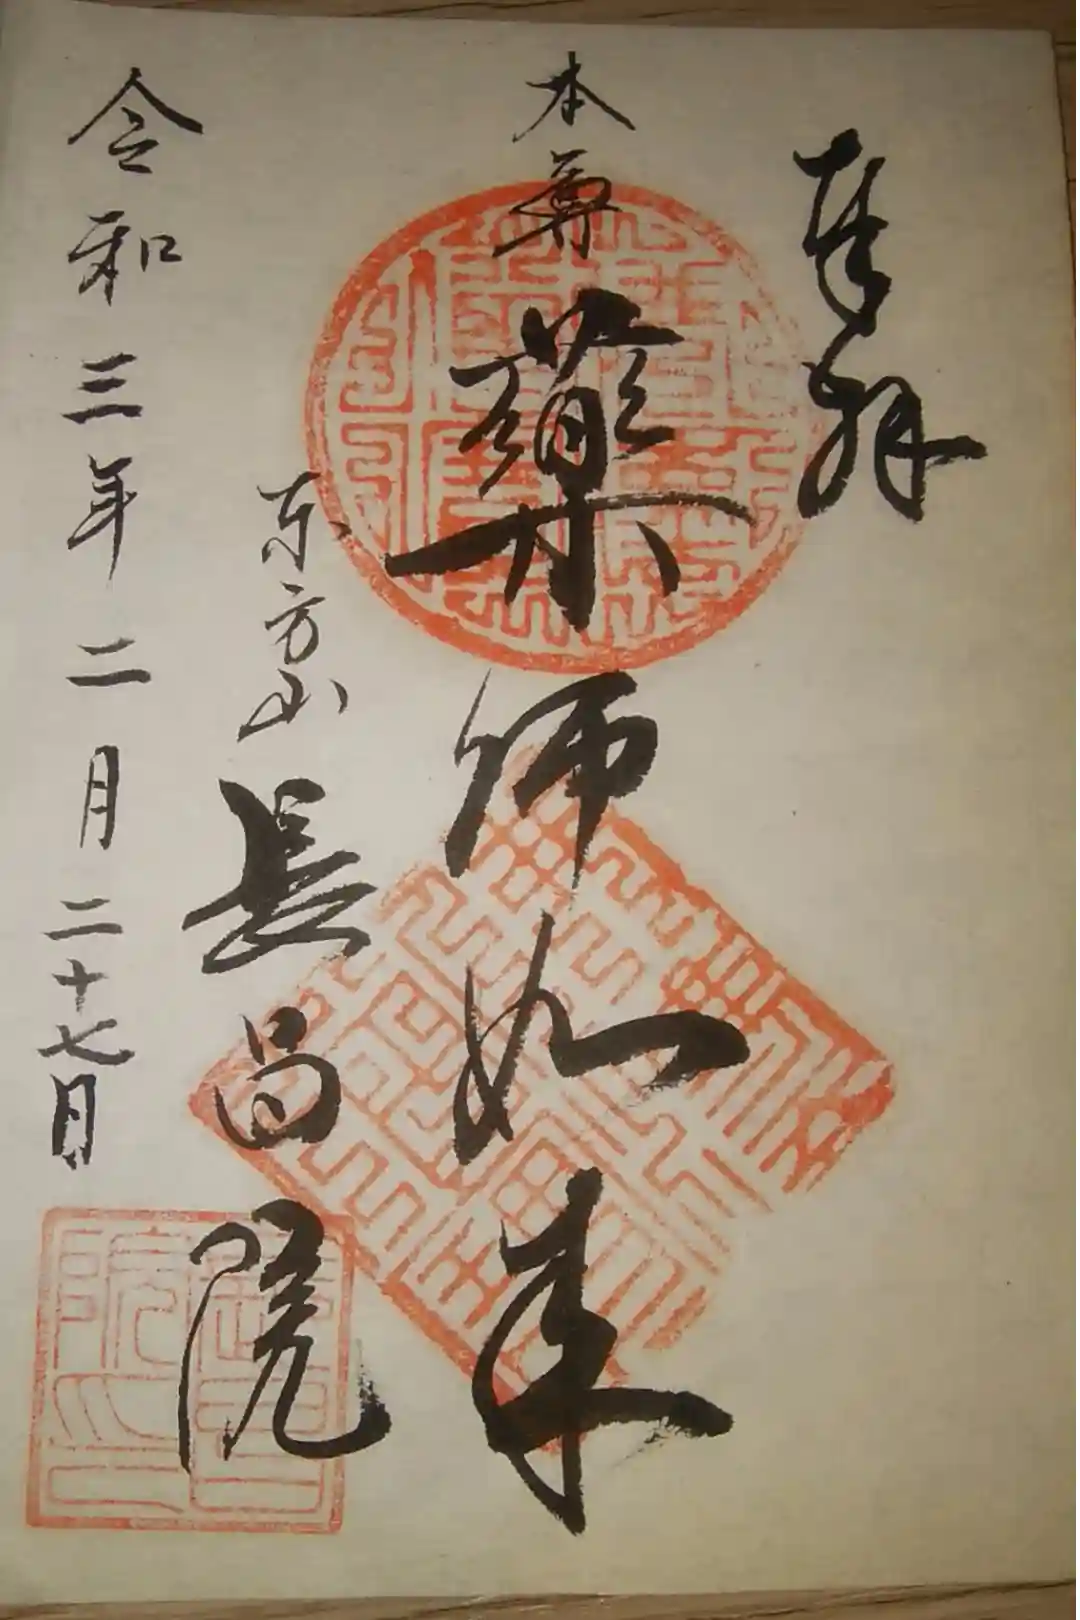 奉拝
本尊
薬師如来
東方山
長昌院
令和三年二月二十七日